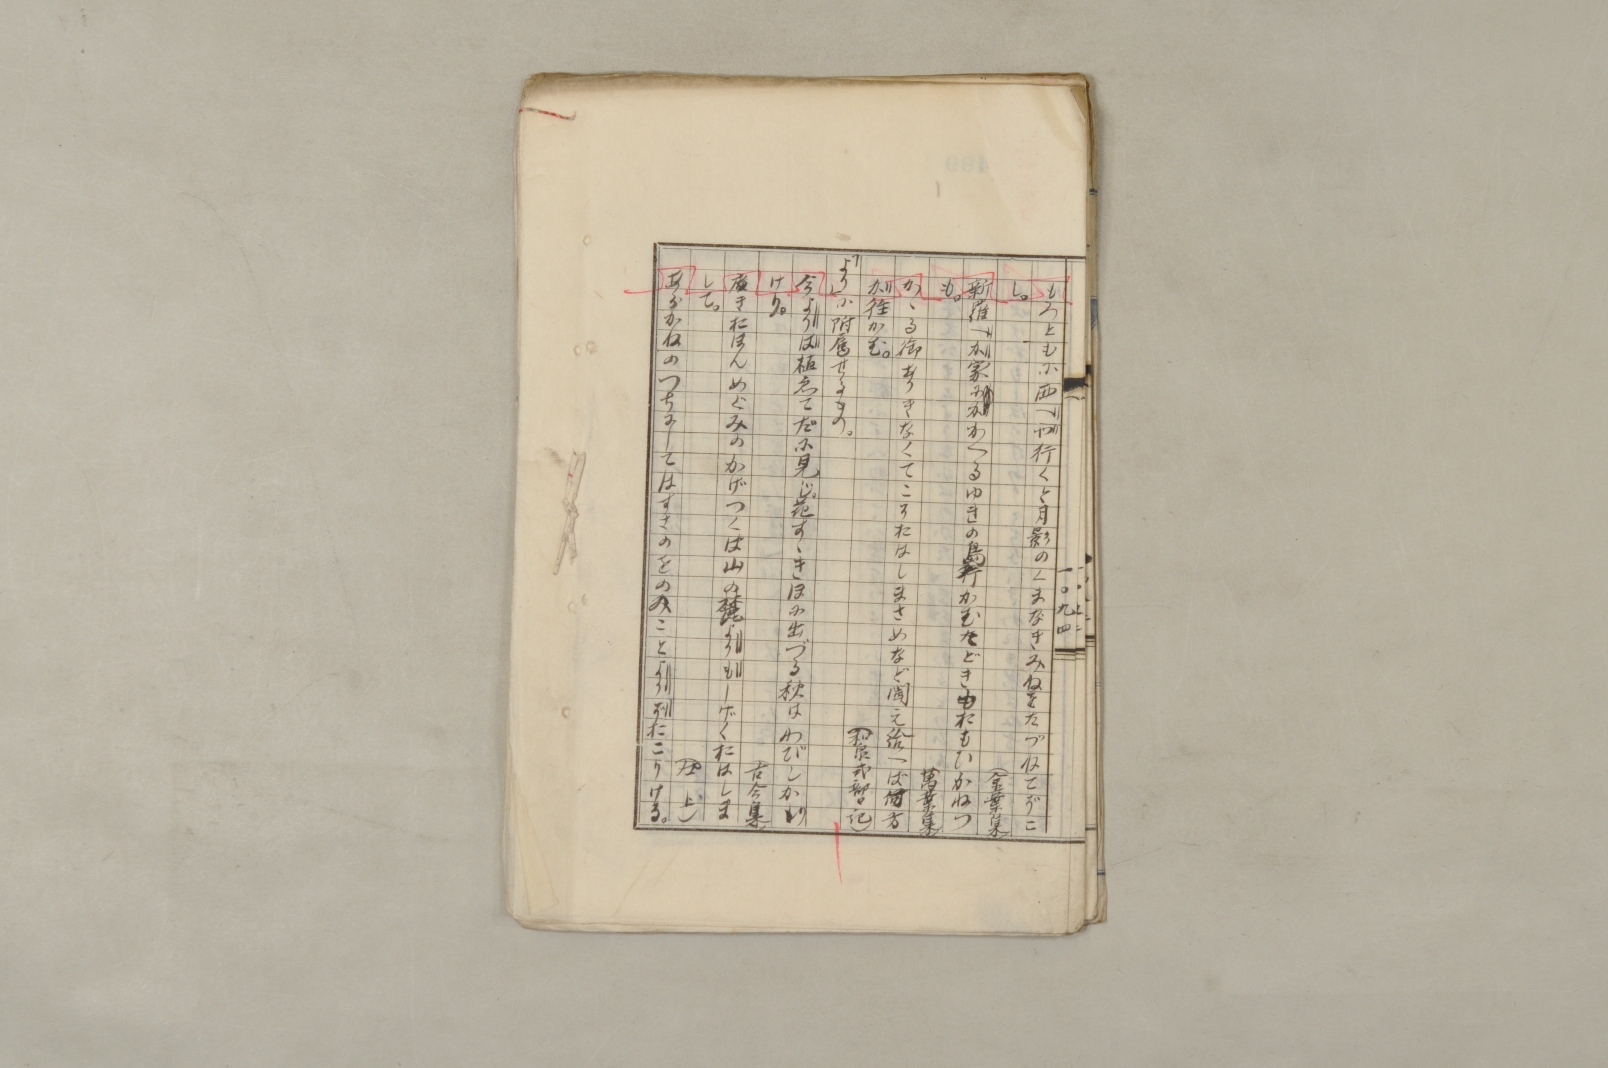 もろともに西へや行くと月影のくまなきみねをたづねてぞこ
し。
(金葉集)
新羅へか家にかかへるゆきの島行かむたどきもおもひかねつ
も。
(萬葉集)
かゝる御ありきなくてこそおはしまさめなど聞え給へば何方
か往かむ。
(和泉式部日記)
「より」に附属せるもの。
今よりは植ゑてだに見じ花すゝきほに出づる秋はわびしかり
けり。
(古今集)
廣きおほんめぐみのかげつくば山の麓よりもしげくおはしま
して。
(仝上)
あらかねのつちにしてはすさのをのみことよりぞおこりける。
一〇九四